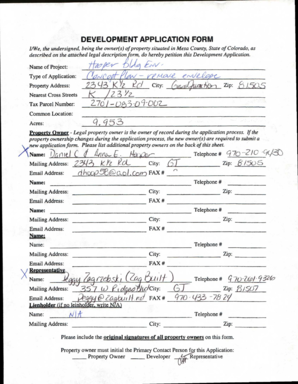 DEVELOPMENT APPLICATION FORM
I/We, the undersigned, being the owner(s) of property situated in Mesa County, State of Colorado, as
described on the attached legal description form, do hereby petition this Development Application.
Name of Project: Harper Bldg Env.
Type of Application: remove envelope
Property Address: 2343 K½ Rd City: Zip: 81505
Nearest Cross Streets K / 23½
Tax Parcel Number: 2701-083-09-002
Common Location:
Acres: 9.953
Property Owner - Legal property owner is the owner of record during the application process. If the
property ownership changes during the application process, the new owner(s) are required to submit a
new application form. Please list additional property owners on the back of this sheet.
X Name: Daniel C & E. Harper Telephone # 970-210-
Mailing Address: 2343 K½ Rd City: GJ Zip: 81505
Email Address: FAX #
Name: Telephone #
Mailing Address: City: Zip:
Email Address: FAX #
Name: Telephone #
Mailing Address: City: Zip:
Email Address: FAX #
Name:
Name: Telephone #
Mailing Address: City: Zip:
Email Address: FAX #
Representative
X Name: Telephone # 970
Mailing Address: 357 W City: GJ Zip: 81507
Email Address: FAX # 970-433-
Lienholder (if no leinholder, write N/A)
Name: N/A Telephone #
Mailing Address: City: Zip:
Please include the original signatures of all property owners on this form.
Property owner must initial the Primary Contact Person for this Application:
Property Owner Developer Representative